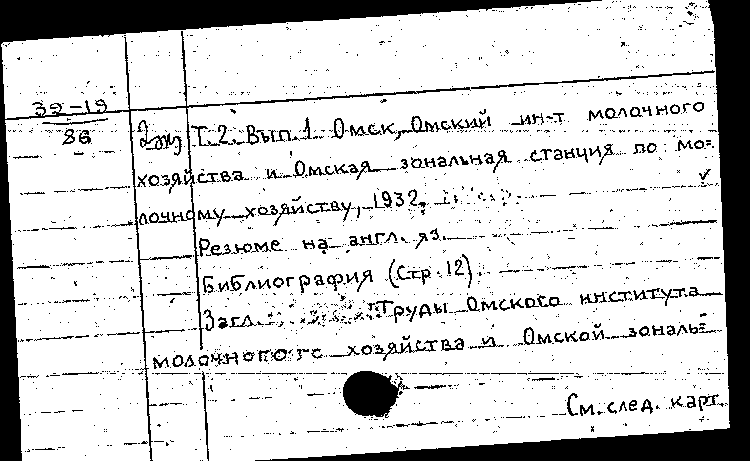 32-19
86
2 экз Т.2. Вып.1 Омск, Омский ин-т молочного
хозяйства и Омская зональная станция по мо=
лочному хозяйству, 1932.
Резюме на англ. яз.
Библиография (стр. 12).
Загл. Труды Омского института
молочного хозяйства и Омской зональ=
См. след. карт.